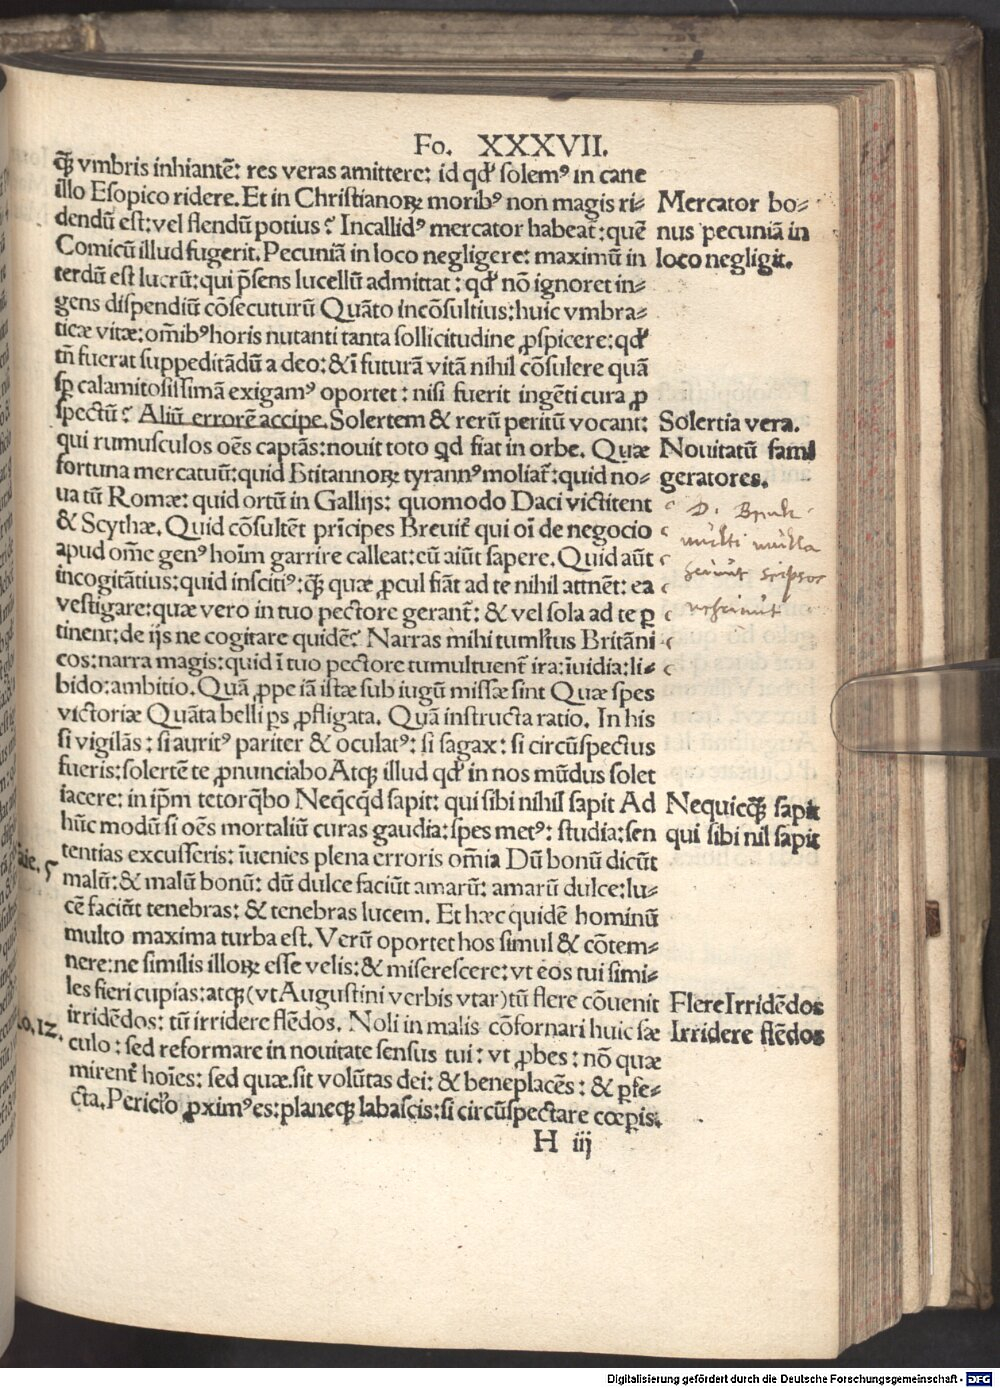 Fo. XXXVII.
q̃ʒ vmbris inhiantẽ: res veras amittere: id qd' solemꝰ in cane
illo Esopico ridere. Et in Christianoꝝ moribꝰ non magis ri-
dendũ est: vel flendũ potius ? Incallidꝰ mercator habeat̃: quẽ
Comicũ illud fugerit. Pecuniã in loco negligere: maximũ in
terdũ est lucrũ: qui p̃sens lucellũ admittat: qd' nõ ignoret in-
gens dispendiũ cõsecuturũ Quãto incõsultius: huic vmbra-
ticæ vitæ: om̃ibꝰ horis nutanti tanta sollicitudine ꝓspicere: qd'
tñ fuerat suppeditãdũ a deo: & ĩ futurã vitã nihil cõsulere quã
sꝑ calamitosissimã exigamꝰ oportet: nisi fuerit ingẽti cura ꝓ
spectũ ? Aliũ errorẽ accipe. Solertem & rerũ peritũ vocant:
qui rumusculos oẽs captãs: nouit toto qd fiat in orbe. Quæ
fortuna mercatuũ: quid Btitannoꝝ tyrannꝰ moliat̃: quid no-
ua tũ Romæ: quid ortũ in Gallijs: quomodo Daci victitent
& Scythæ. Quid cõsultẽt prĩcipes Breuit̃ qui oĩ de negocio
apud om̃e genꝰ hoĩm garrire calleat: eũ aiũt sapere. Quid aũt
incogitãtius: quid inscitiꝰ: q̃ʒ quæ ꝓcul fiãt ad te nihil attnẽt: ea
vestigare: quæ vero in tuo pectore gerant̃: & vel sola ad te ꝑ
tinent: de ijs ne cogitare quidẽ? Narras mihi tumltus Britãni
cos: narra magis: quid ĩ tuo pectore tumultuent̃ ira: ĩuidia: li-
bido: ambitio. Quã ꝓpe iã istæ sub iugũ missæ sint Quæ spes
victoriæ Quãta belli ꝑs ꝓfligata. Quã instructa ratio. In his
si vigilãs: si auritꝰ pariter & oculatꝰ: si sagax: si circũspectus
fueris: solertẽ te ꝓnunciabo Atqʒ illud qd' in nos mũdus solet
iacere: in ip̃m tetorq̃bo Neq̃cq̃d sapit: qui sibi nihil sapit Ad
hũc modũ si oẽs mortaliũ curas gaudia: spes metꝰ: studia: sen
tentias excusseris: ĩuenies plena erroris om̃ia Dũ bonũ dicũt
malũ: & malũ bonũ: dũ dulce faciũt amarũ: amarũ dulce: lu-
cẽ faciũt tenebras: & tenebras lucem. Et hæc quidẽ hominũ
multo maxima turba est. Verũ oportet hos simul & cõtem-
nere: ne similis illoꝝ esse velis: & miserescere: vt eos tui simi-
les fieri cupias: atqʒ (vt Augustini verbis vtar) tũ flere cõuenit
irridẽdos: tũ irridere flẽdos. Noli in malis cõfornari huic sæ
culo: sed reformare in nouitate sensus tui: vt ꝓbes: nõ quæ
mirent̃ hoĩes: sed quæ.sit volũtas dei: & beneplacẽs: & ꝑfe-
cta. Pericl'o ꝓximꝰ es: planeqʒ labascis: si circũspectare cœꝑis.
H iij
Mercator bo-
nus pecuniã in
loco negligit.
Solertia vera.
Nouitatũ fami
geratores.
multi multa
Nequicq̃ʒ sapit
qui sibi nil sapit
Flere Irridẽdos
Irridere flẽdos
Digitalisierung gefördert durch die Deutsche Forschungsgemeinschaft - DFG